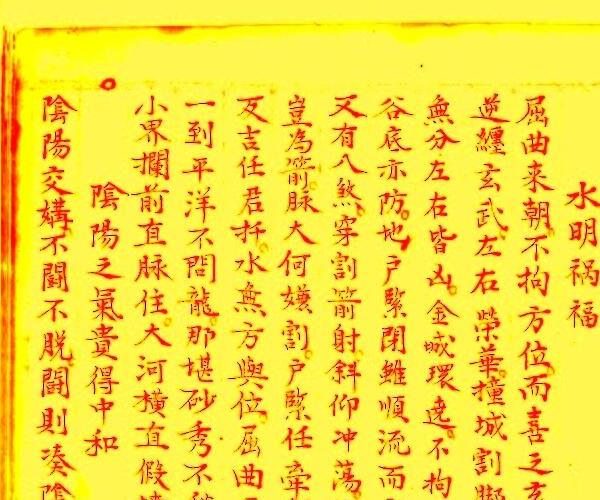 水明祸福
屈曲来朝不拘方位而喜之玄
逆纏玄武左右榮華撞城割
無分左右皆凶金城環遶不拘
谷底亦防地户緊閉雖順流而
又有八煞穿割箭射斜仰冲荡
豈為箭脉大何嫌割户緊任牵
反吉任君扦水無方與位屈曲
一到平洋不問龍那堪砂秀不
小界攔前直脉住大河横直假
陰陽之氣貴得中和
陰陽交媾不闘不脱闘則凑陰